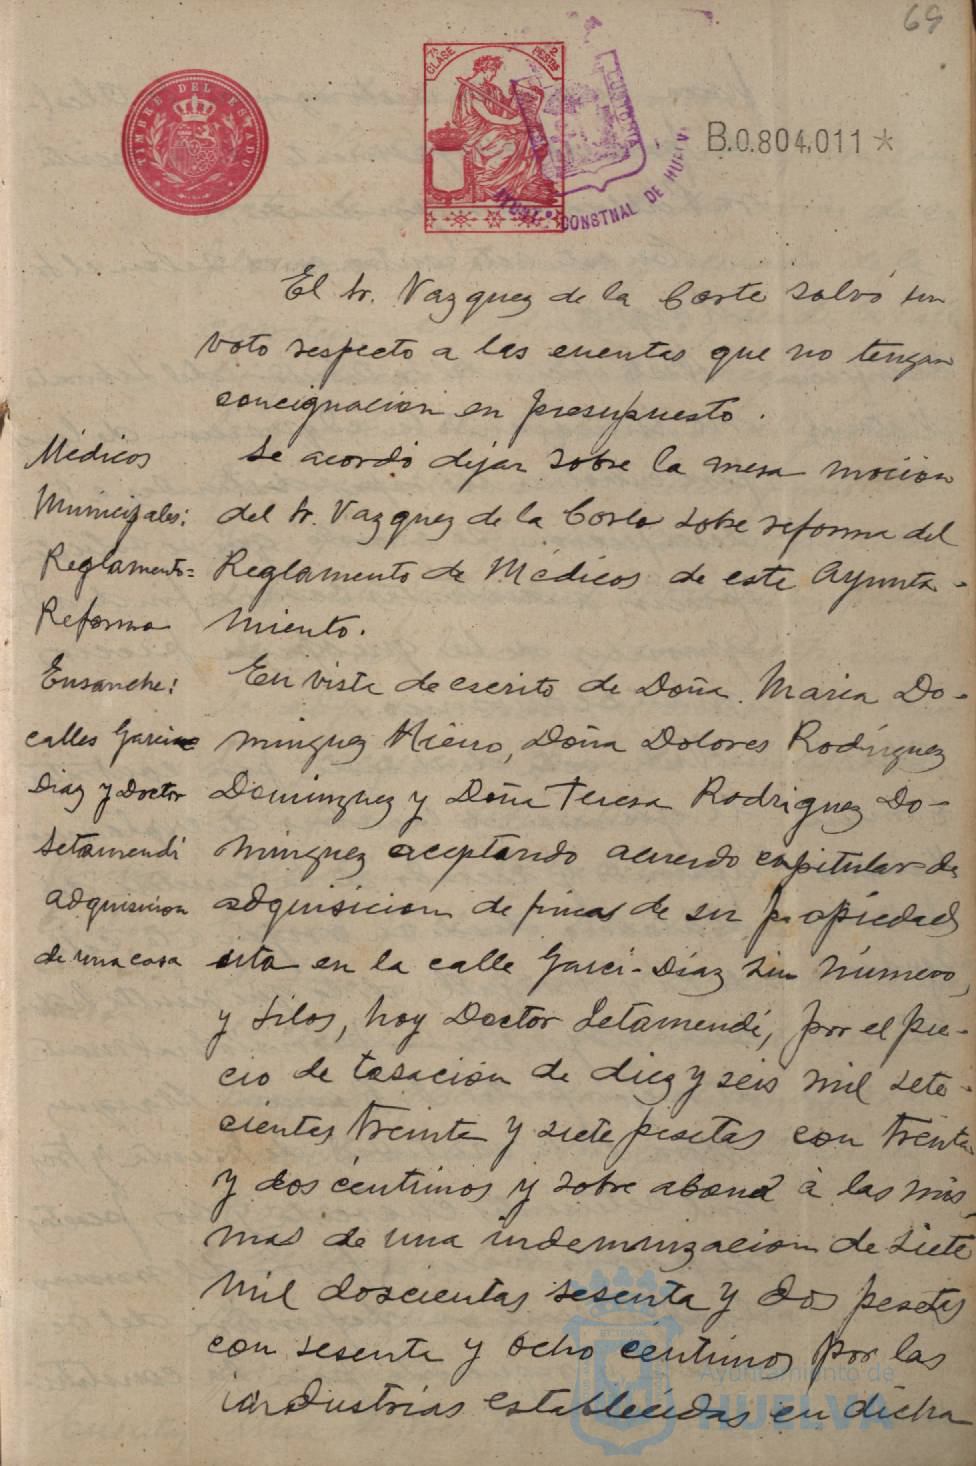 69
TIMBRE DEL ESTADO
7ª CLASE
2 PESETAS
CONSTNAL DE HUELVA
B.0.804,011 *
El Sr. Vazquez de la Corte salvó su
voto respecto a las cuentas que no tengan
concignacion en presupuesto.
Médicos
Municipales:
Reglamento=
Reforma
Se acordó dejar sobre la mesa mocion
del Sr. Vazquez de la Corte sobre reforma del
Reglamento de Médicos de este Ayunta-
miento.
Ensanche:
calles Garci
Diaz y Doctor
Letamendi
adquisicion
de una casa
En vista de escrito de Doña Maria Do-
minguez Hierro, Doña Dolores Rodriguez
Dominguez y Doña Teresa Rodriguez Do-
minguez aceptando acuerdo capitular de
adquisicion de fincas de su propiedad
sita en la calle Garci-Diaz sin número,
y Silos, hoy Doctor Letamendi, por el pre-
cio de tasación de diez y seis mil sete-
cientas treinta y siete pesetas con treinta
y dos céntimos y sobre abono à las mis-
mas de una indemnizacion de siete
mil doscientas sesenta y dos pesetas
con sesenta y ocho céntimos por las
industrias establecidas en dicha
Ayuntamiento de
HUELVA